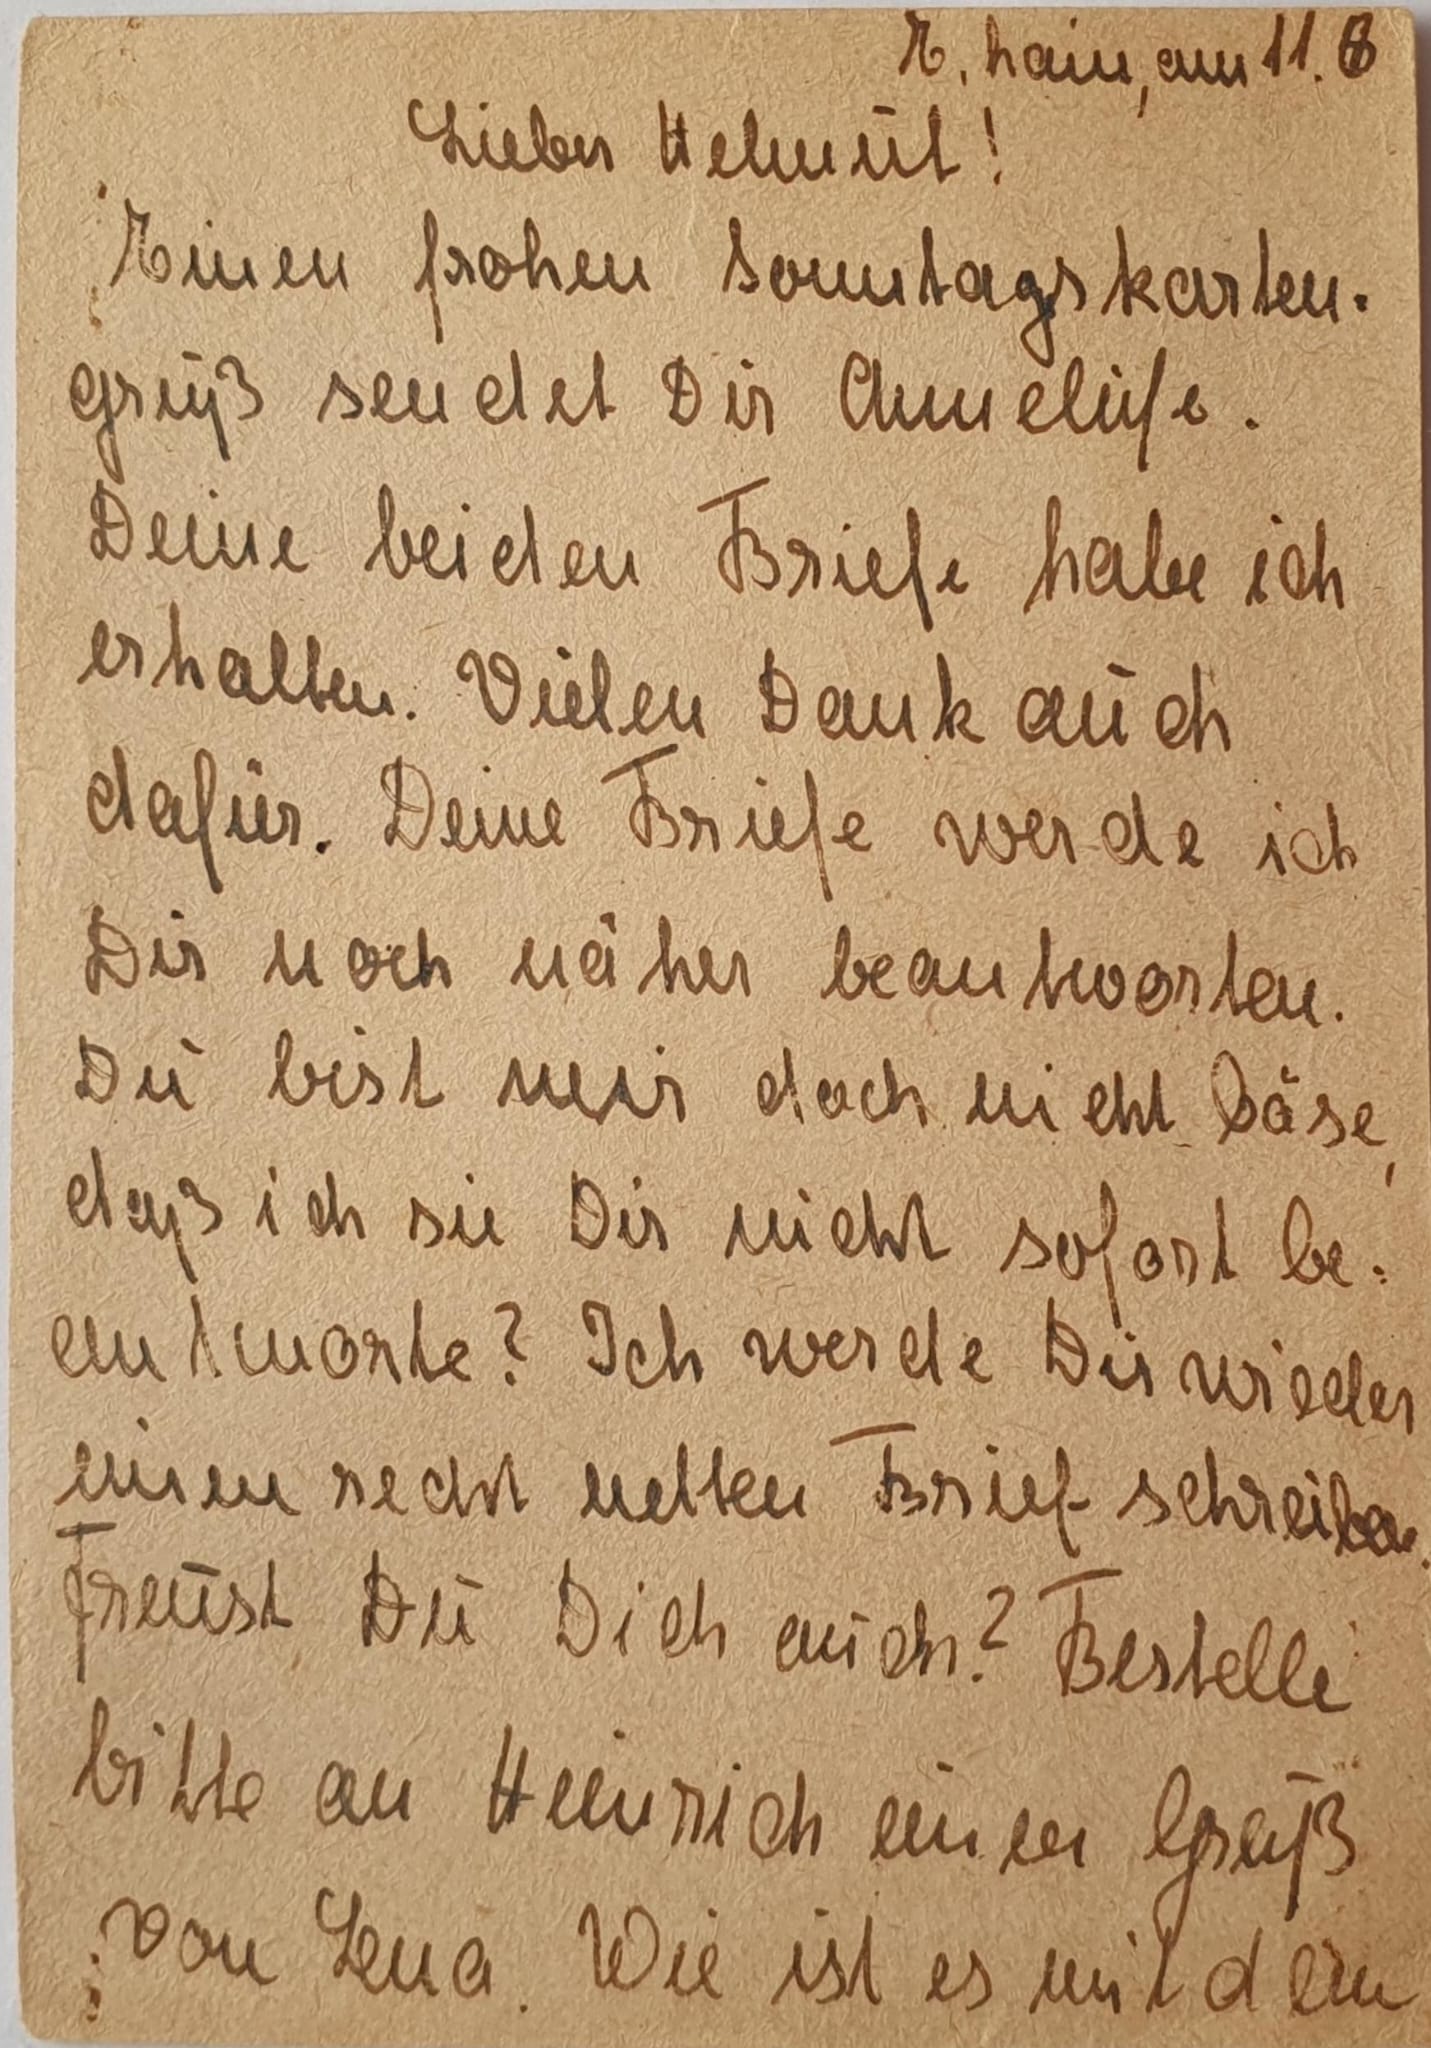 E. hain, am 11. 6
Lieber Helmut!
Einen frohen Sonntagskarten-
gruß sendet Dir Anneliese.
Deine beiden Briefe habe ich
erhalten. Vielen Dank auch
dafür. Deine Briefe werde ich
Dir noch näher beantworten.
Du bist mir doch nicht böse,
daß ich sie Dir nicht sofort be-
antworte? Ich werde Dir wieder
einen recht netten Brief schreiben.
Freust Du Dich auch? Bestelle
bitte an Heinrich einen Gruß
von Lena. Wie ist es mit dem